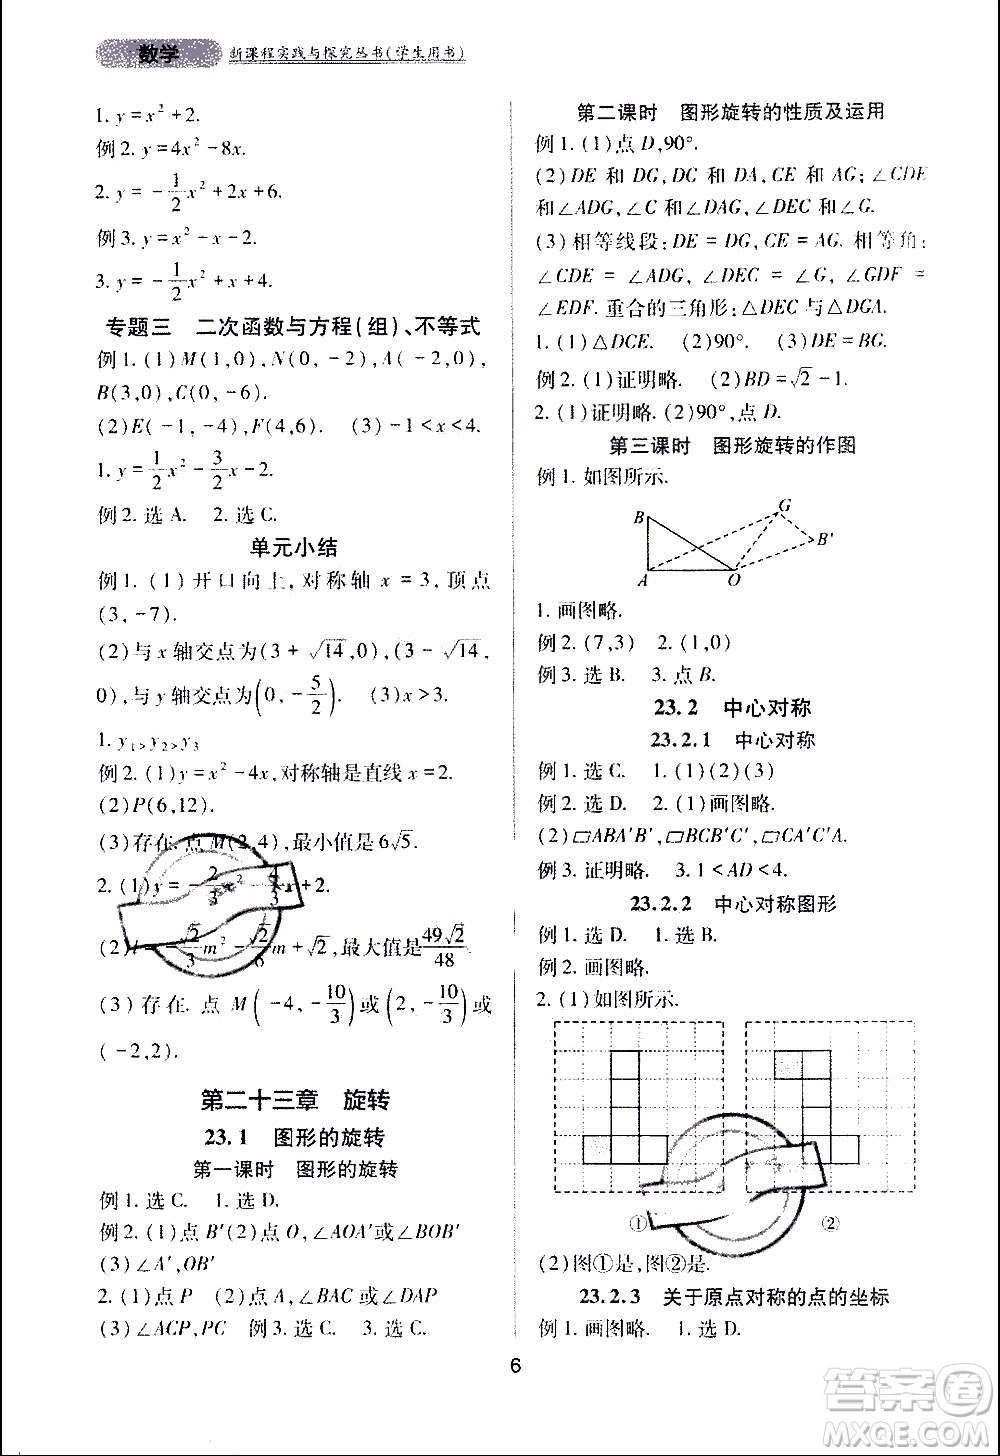 数学 新课程实践与探究丛书(学生用书)
1. y = x² + 2.
例 2. y = 4x² - 8x.
2. y = -1/2 x² + 2x + 6.
例 3. y = -x² - x - 2.
3. y = -1/2 x² + x + 4.
专题三 二次函数与方程(组)、不等式
例 1. (1) M(1,0), N(0, -2), A(-2,0),
B(3,0), C(0, -6).
(2) E(-1, -4), F(4,6). (3) -1 < x < 4.
1. y = 1/2 x² - 3/2 x - 2.
例 2. 选 A. 2. 选 C.
单元小结
例 1. (1) 开口向上, 对称轴 x = 3, 顶点
(3, -7).
(2) 与 x 轴交点为(3 + √14, 0), (3 - √14,
0), 与 y 轴交点为(0, -5/2). (3) x > 3.
1. y₁ > y₂ > y₃
例 2. (1) y = x² - 4x, 对称轴是直线 x = 2.
(2) P(6,12).
(3) 存在. 点 M(2,4), 最小值是 6√5.
2. (1) y = -2/3 x² - 4/3 x + 2.
(2) = √2/3 m² - √2/6 m + √2, 最大值是 49√2/48
(3) 存在. 点 M(-4, -10/3) 或 (2, -10/3) 或
(-2,2).
第二十三章 旋转
23.1 图形的旋转
第一课时 图形的旋转
例 1. 选 C. 1. 选 D.
例 2. (1) 点 B′ (2) 点 O, ∠AOA′ 或 ∠BOB′
(3) ∠A′, OB′
2. (1) 点 P (2) 点 A, ∠BAC 或 ∠DAP
(3) ∠ACP, PC 例 3. 选 C. 3. 选 C.
第二课时 图形旋转的性质及运用
例 1. (1) 点 D, 90°.
(2) DE 和 DG, DC 和 DA, CE 和 AG; ∠CDE
和 ∠ADG, ∠C 和 ∠DAG, ∠DEC 和 ∠G.
(3) 相等线段: DE = DG, CE = AG. 相等角:
∠CDE = ∠ADG, ∠DEC = ∠G, ∠GDF =
∠EDF. 重合的三角形: △DEC 与 △DGA.
1. (1) △DCE. (2) 90°. (3) DE = BG.
例 2. (1) 证明略. (2) BD = √2 - 1.
2. (1) 证明略. (2) 90°, 点 D.
第三课时 图形旋转的作图
例 1. 如图所示.
G
B
B′
A
O
1. 画图略.
例 2. (7,3) 2. (1,0)
例 3. 选 C. 3. 点 B.
23.2 中心对称
23.2.1 中心对称
例 1. 选 C. 1. (1)(2)(3)
例 2. 选 D. 2. (1) 画图略.
(2) ▱ABA′B′, ▱BCB′C′, ▱CA′C′A.
例 3. 证明略. 3. 1 < AD < 4.
23.2.2 中心对称图形
例 1. 选 D. 1. 选 B.
例 2. 画图略.
2. (1) 如图所示.
① ②
(2) 图①是, 图②是.
23.2.3 关于原点对称的点的坐标
例 1. 画图略. 1. 选 D.
6
答案圈
MXQE.COM